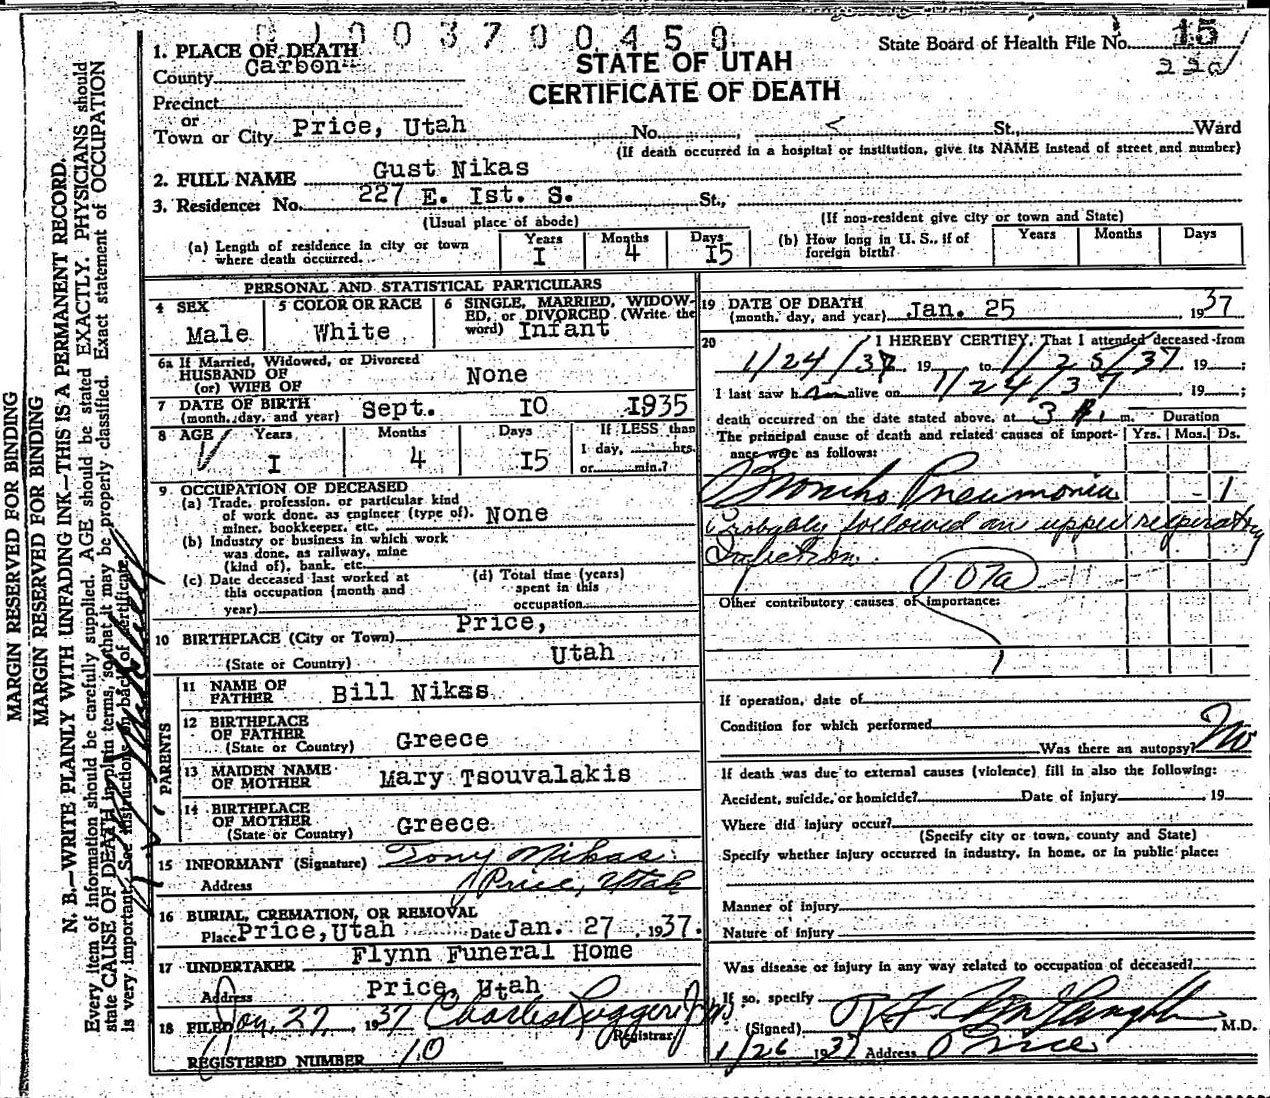 0 1 0 0 3 7 0 0 4 5 0
State Board of Health File No. 15
220
STATE OF UTAH
CERTIFICATE OF DEATH
1. PLACE OF DEATH
County Carbon
Precinct
or
Town or City Price, Utah No. St., Ward
(If death occurred in a hospital or institution, give its NAME instead of street and number)
2. FULL NAME Gust Nikas
3. Residence: No. 227 E. Ist. S. St.,
(Usual place of abode)
(If non-resident give city or town and State)
(a) Length of residence in city or town where death occurred. Years I Months 4 Days I5
(b) How long in U. S., if of foreign birth? Years Months Days
PERSONAL AND STATISTICAL PARTICULARS
4 SEX Male
5 COLOR OR RACE White
6 SINGLE, MARRIED, WIDOW-
ED, or DIVORCED (Write the
word) Infant
6a If Married, Widowed, or Divorced
HUSBAND OF
(or) WIFE OF None
7 DATE OF BIRTH
(month, day, and year) Sept. I0 I935
8 AGE Years I Months 4 Days I5
If LESS than
1 day, hrs.
or min.?
9. OCCUPATION OF DECEASED
(a) Trade, profession, or particular kind
of work done, as engineer (type of),
miner, bookkeeper, etc. None
(b) Industry or business in which work
was done, as railway, mine
(kind of), bank, etc.
(c) Date deceased last worked at
this occupation (month and
year)
(d) Total time (years)
spent in this
occupation
10 BIRTHPLACE (City or Town) Price,
(State or Country) Utah
PARENTS
11 NAME OF
FATHER Bill Nikas
12 BIRTHPLACE
OF FATHER
(State or Country) Greece
13 MAIDEN NAME
OF MOTHER Mary Tsouvalakis
14 BIRTHPLACE
OF MOTHER
(State or Country) Greece
15 INFORMANT (Signature) Tony Nikas
Address Price, Utah
16 BURIAL, CREMATION, OR REMOVAL
Place Price, Utah Date Jan. 27 , 1937.
17 UNDERTAKER Flynn Funeral Home
Address Price, Utah
18 FILED Jan, 27, 1937 Charles Ruggeri Jr.
Registrar
REGISTERED NUMBER 10
19 DATE OF DEATH
(month, day, and year) Jan. 25 1937
20 I HEREBY CERTIFY, That I attended deceased from
1/24/37 19 to 1/25/37, 19 ;
I last saw him alive on 1/24/37, 19 ;
death occurred on the date stated above, at 3 m. Duration
The principal cause of death and related causes of import-
ance were as follows: Yrs. Mos. Ds.
Broncho Pneumonia - 1
Probably followed an upper respiratory
Infection.
107a
Other contributory causes of importance:
If operation, date of
Condition for which performed
Was there an autopsy? No
If death was due to external causes (violence) fill in also the following:
Accident, suicide, or homicide? Date of injury , 19
Where did injury occur?
(Specify city or town, county and State)
Specify whether injury occurred in industry, in home, or in public place:
Manner of injury
Nature of injury
Was disease or injury in any way related to occupation of deceased?
If so, specify
(Signed) M.D.
1/26 1937 Address Price
MARGIN RESERVED FOR BINDING
MARGIN RESERVED FOR BINDING
N. B.—WRITE PLAINLY WITH UNFADING INK—THIS IS A PERMANENT RECORD.
Every item of information should be carefully supplied. AGE should be stated EXACTLY. PHYSICIANS should
state CAUSE OF DEATH in plain terms, so that it may be properly classified. Exact statement of OCCUPATION
is very important. See instructions on back of certificate.